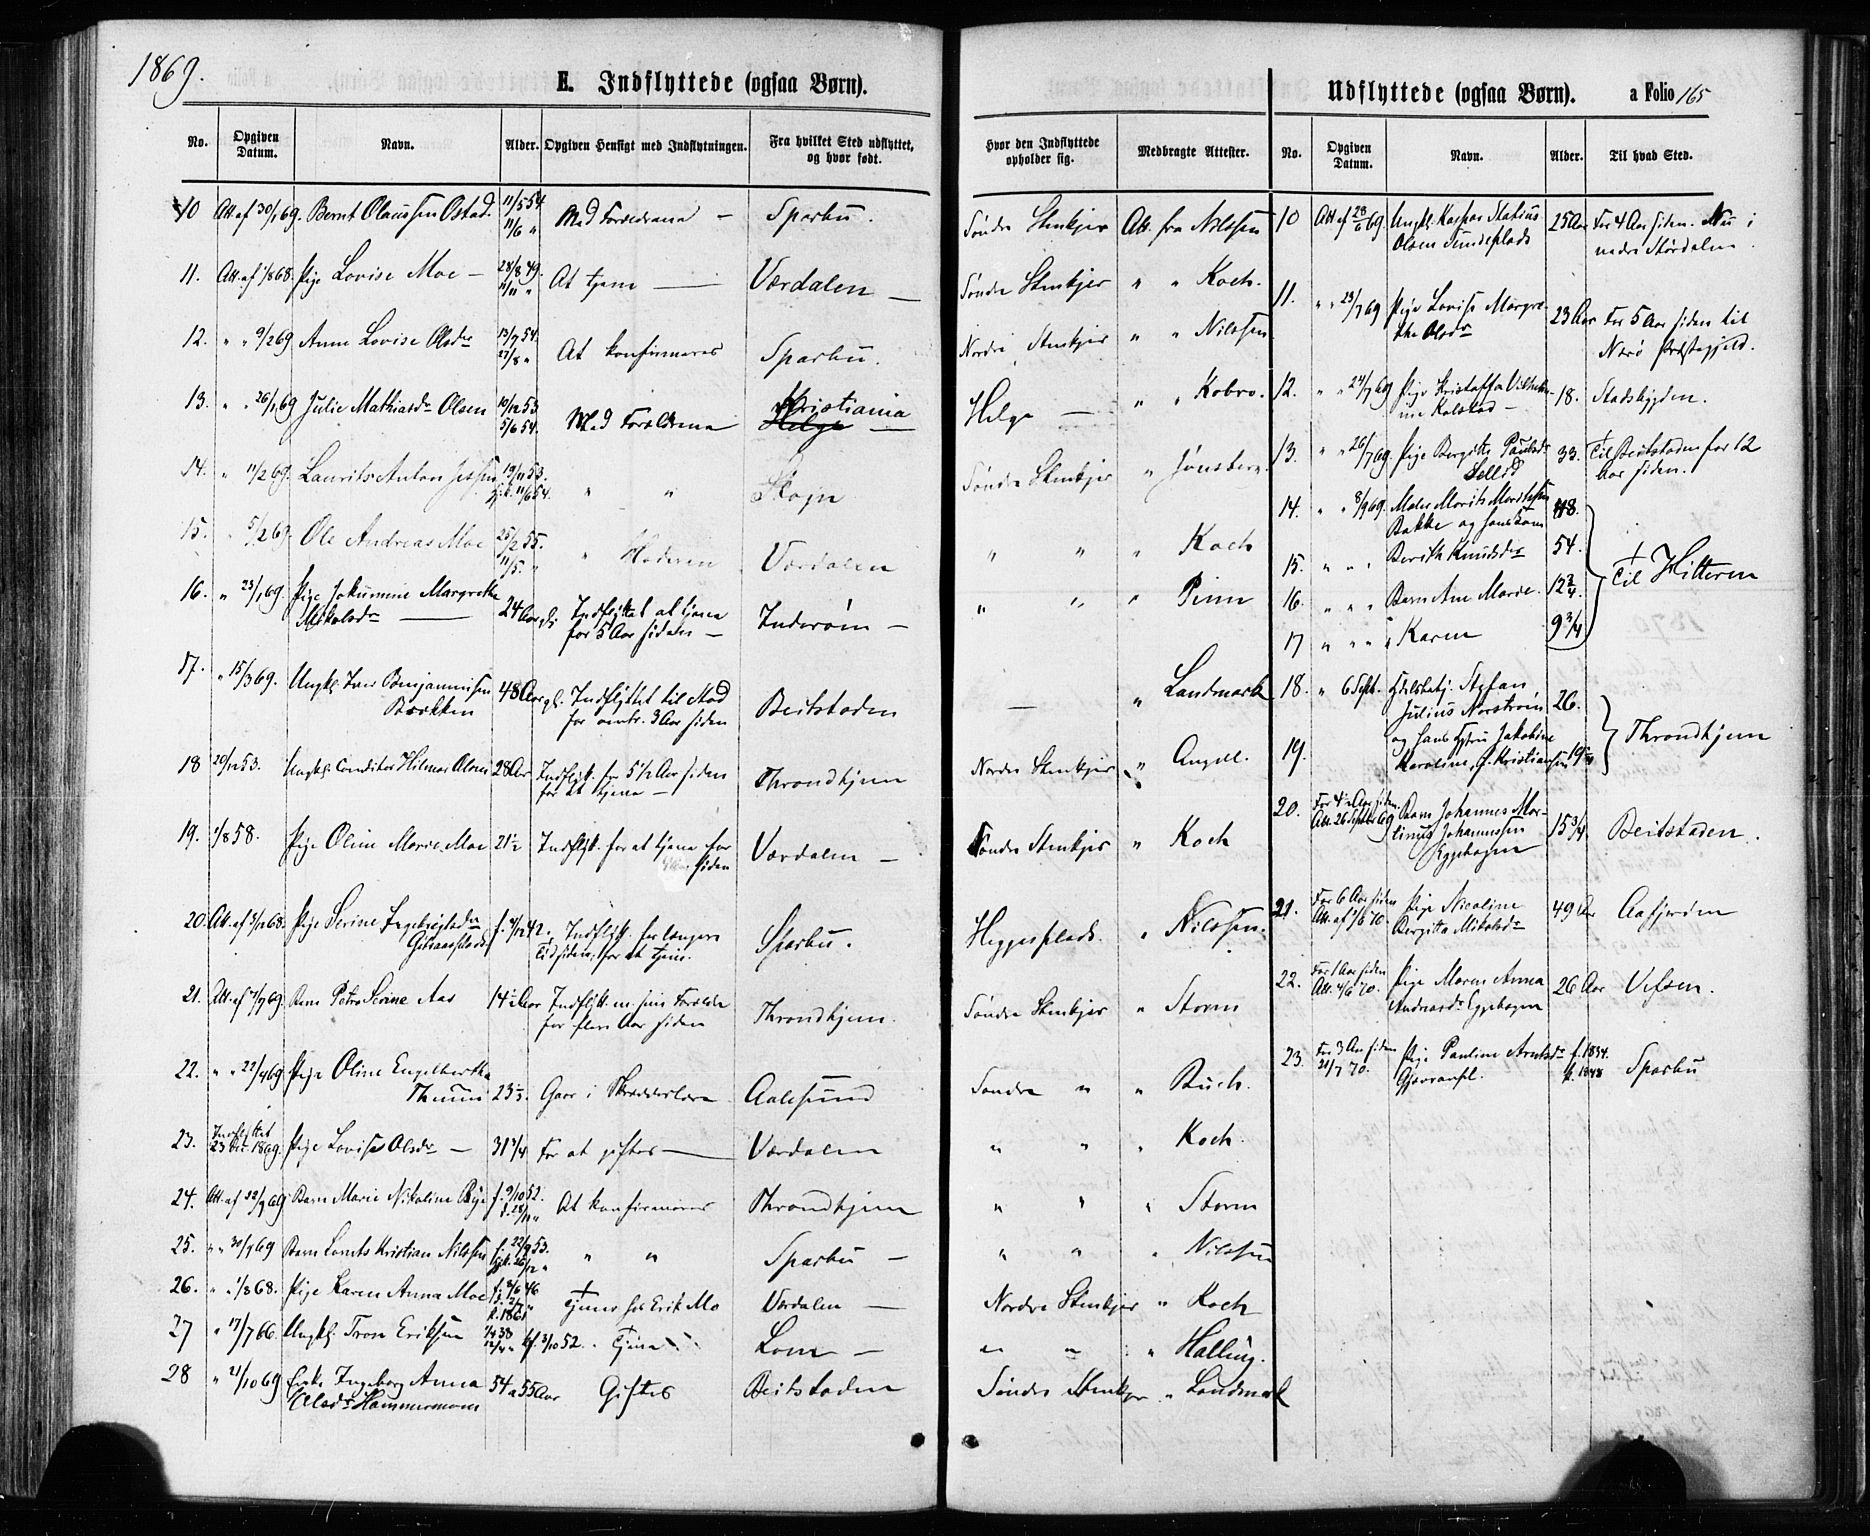 1869.
E. Indflyttede (ogsaa Børn).
No. Opgiven Datum. Navn. Alder. Opgiven Hensigt med Indflytningen. Fra hvilket Sted udflyttet, og hvor født. Hvor den Indflyttede opholder sig. Medbragte Attester.
10 Att. af 30/1 69. Bernt Olaussen Østad. 11/5 54 11/6 " Med Forældrene — Sparbu. Søndre Stenkjer Att. fra Nilssen
11. Att. af 1/8 68. Pige Lovise Moe — 28/8 49. 11/11 " At tjene — Værdalen — Søndre Stenkjer " " Koch.
12. " " 9/2 69 Anne Lovise Olsdr 13/7 54. 27/8 " At konfirmeres Sparbu. Nordre Stenkjer " " Nilssen
13. " " 26/1 69 Julie Mathiasdr Olsen 10/12 53. 5/6 54. Med Forældrene Kristiania Helge — Helge — " " Kobro.
14. " 11/2 69. Laurits Anton Jessen 19/11 53. 11/6 54. " " Skojn Søndre Stenkjer " Jønsberg.
15. " 5/2 69. Ole Andreas Moe 25/2 55. 11/5. " " Moderen Værdalen " " " Koch
16. " 23/1 69. Pige Jokumine Margrethe Mikalsdr — 24 Aar gl. Indflyttet at tjene for 5 Aar siden — Inderøen — " " " Pinn
17. " 15/3 69. Ungkl. Iver Benjaminsen Brækken 48 Aar gl. Indflyttet til Stad for omtr. 3 Aar siden Beitstaden — " Landmark
18 20/12 53. Ungkl. Conditor Hilmar Olsen 28 Aar Indflytt. for 5½ Aar siden for at tjene — Throndhjem Nordre Stenkjer " Angell.
19. 1/8 58. Pige Oline Marie Moe 21½ Indflyt. for at tjene for siden Værdalen — Søndre Stenkjer " Koch
20. Att. af 5/12 68. Pige Serine Ingebrigtsdr f. 4/12 42. Indflytt. for længere Tid siden, for at tjene. Sparbu. Heggesplads. " Nilssen.
21. Att. af 7/7 69. Barn Petra Serine Aas 14½ Aar Indflytt. m. sine Forældre for flere Aar siden Throndhjem. Søndre Stenkjer " Storm
22. " " 22/4 69 Pige Oline Engelbertha Thuun 23⅓. Gaar i Skrædderlære Aalesund Søndre " " Buch.
23. Indflyttet 23 Okt. 1869. Pige Lovise Olsdr — 31¾ For at giftes — Værdalen " " " Koch.
24. Att. af 22/9 69 Barn Marie Nikoline Bye f. 9/10 52. " At konfirmeres Throndhjem " " " Storm
25. " " 30/9 69 Barn Lorents Kristian Nilssen f. 22/9 53. " " Sparbu — " " " Nilssen
26. " " 1/8 68. Pige Karen Anna Moe f. 8/6 46 k. 1861 Tjener hos Erik Mo Værdalen — Nordre Stenkjer " Koch
27 " 17/7 66. Ungkl. Tron Eriksen 1/4 38 kf. 3/10 52. Tjene Lom — " " " Halling.
28 " 21/10 69 Enke Ingeborg Anna Olsdr Hammermoen 54 a 55 Aar Giftes Beitstaden Søndre Stenkjer " Landmark
Udflyttede (ogsaa Børn). a Folio 165
No. Opgiven Datum. Navn. Alder. Til hvad Sted.
10 Att. af 28/6 69. Ungkl. Kaspar Matius Olsen Sundsplads 25 Aar For 4 Aar siden. Nu i nedre Størdalen.
11. " " 23/7 69 Pige Lovise Margrethe Olsdr 23 Aar For 5 Aar siden til Nærø Præstegjeld.
12. " " 24/7 69 Pige Kristofa Vilhelmine Kolstad — 18. Stadsbygden.
13. " " 26/7 69. Pige Bergitte Paulsdr 33. Til Beitstaden for 12 Aar siden.
14. " " 8/9 69. Maler Morits Moritssen Bakke og hans Kone 48.
15. " " " Berith Knudsdr 54.
16. " " " Barn Ane Marie. 12¾.
17 " " " " Karen 9¾
Til Hitteren
18. " 6 Sept. Styfan Julius Norstrøm 26.
19. og hans Hustru Jakobine Karoline, f. Kristiansen 19
Throndhjem
20. For 4½ Aar siden. Att. 26 Septbr 69 Barn Johannes Martinus Johannessen Eggehagen 15¾ Beitstaden.
21. For 6 Aar siden Att. af 1/6 70. Pige Nicoline Bergitta Mikalsdr 49 Aar Aafjorden
22. For 1 Aar siden Att. 4/6 70. Pige Maren Anna Andreasdr Eggehagen 26 Aar Vefsen.
23. For 3 Aar siden 21/7 70. Pige Pauline Arntsdr f. 1834. k. 1848 Sparbu